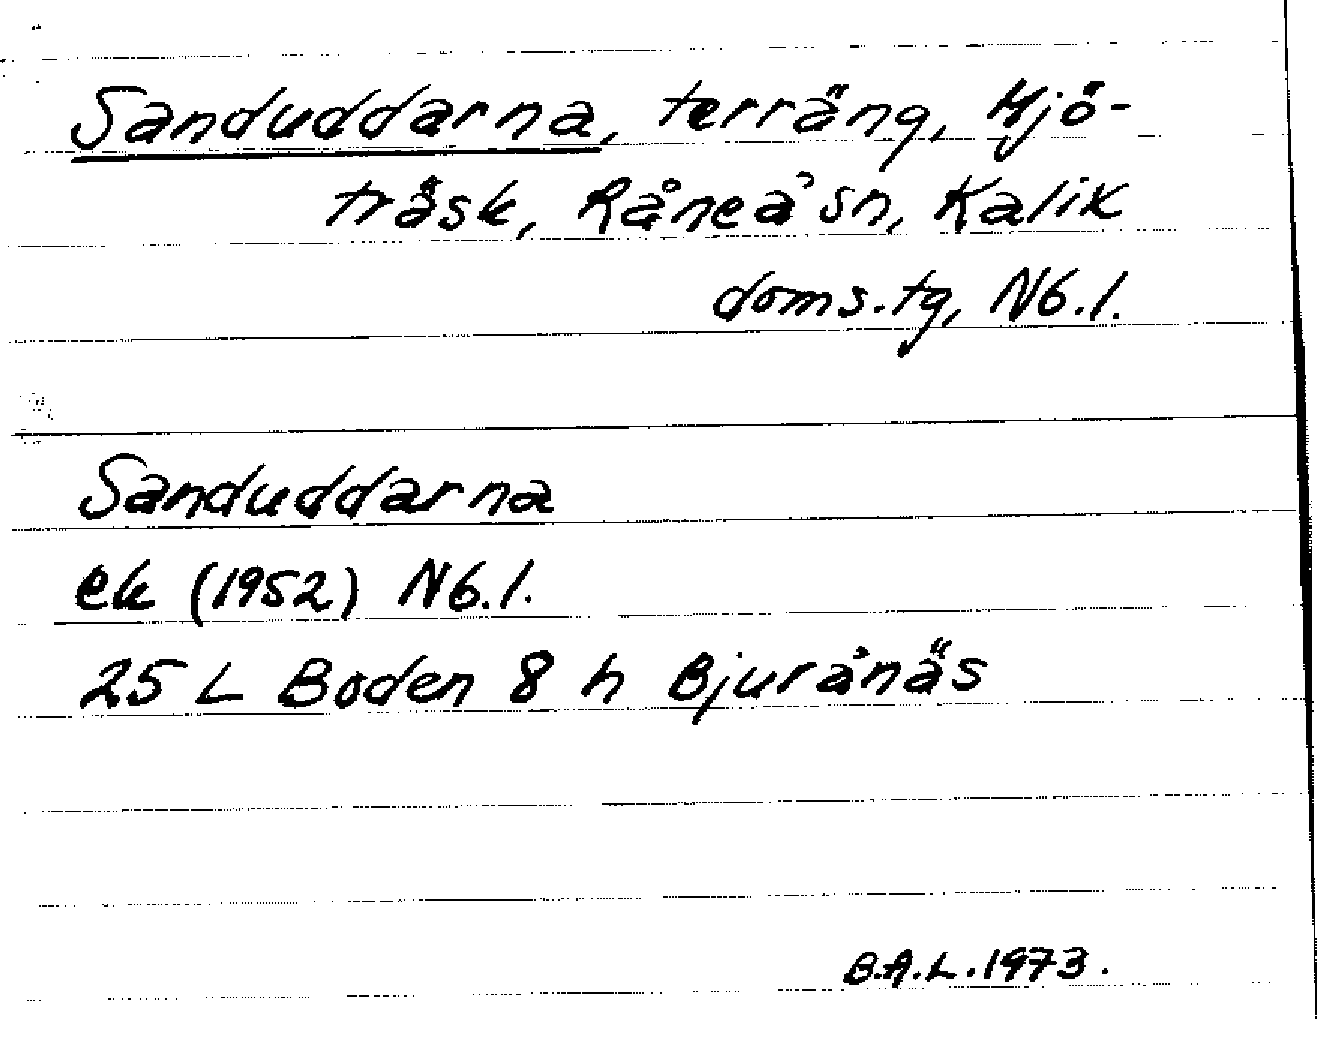 Sanduddarna, terräng, Hjö-
träsk, Råneå sn, Kalix
doms.tg, Nb.l.
Sanduddarna
ek (1952) Nb.l.
25 L Boden 8 h Bjurånäs
B.A.L. 1973.